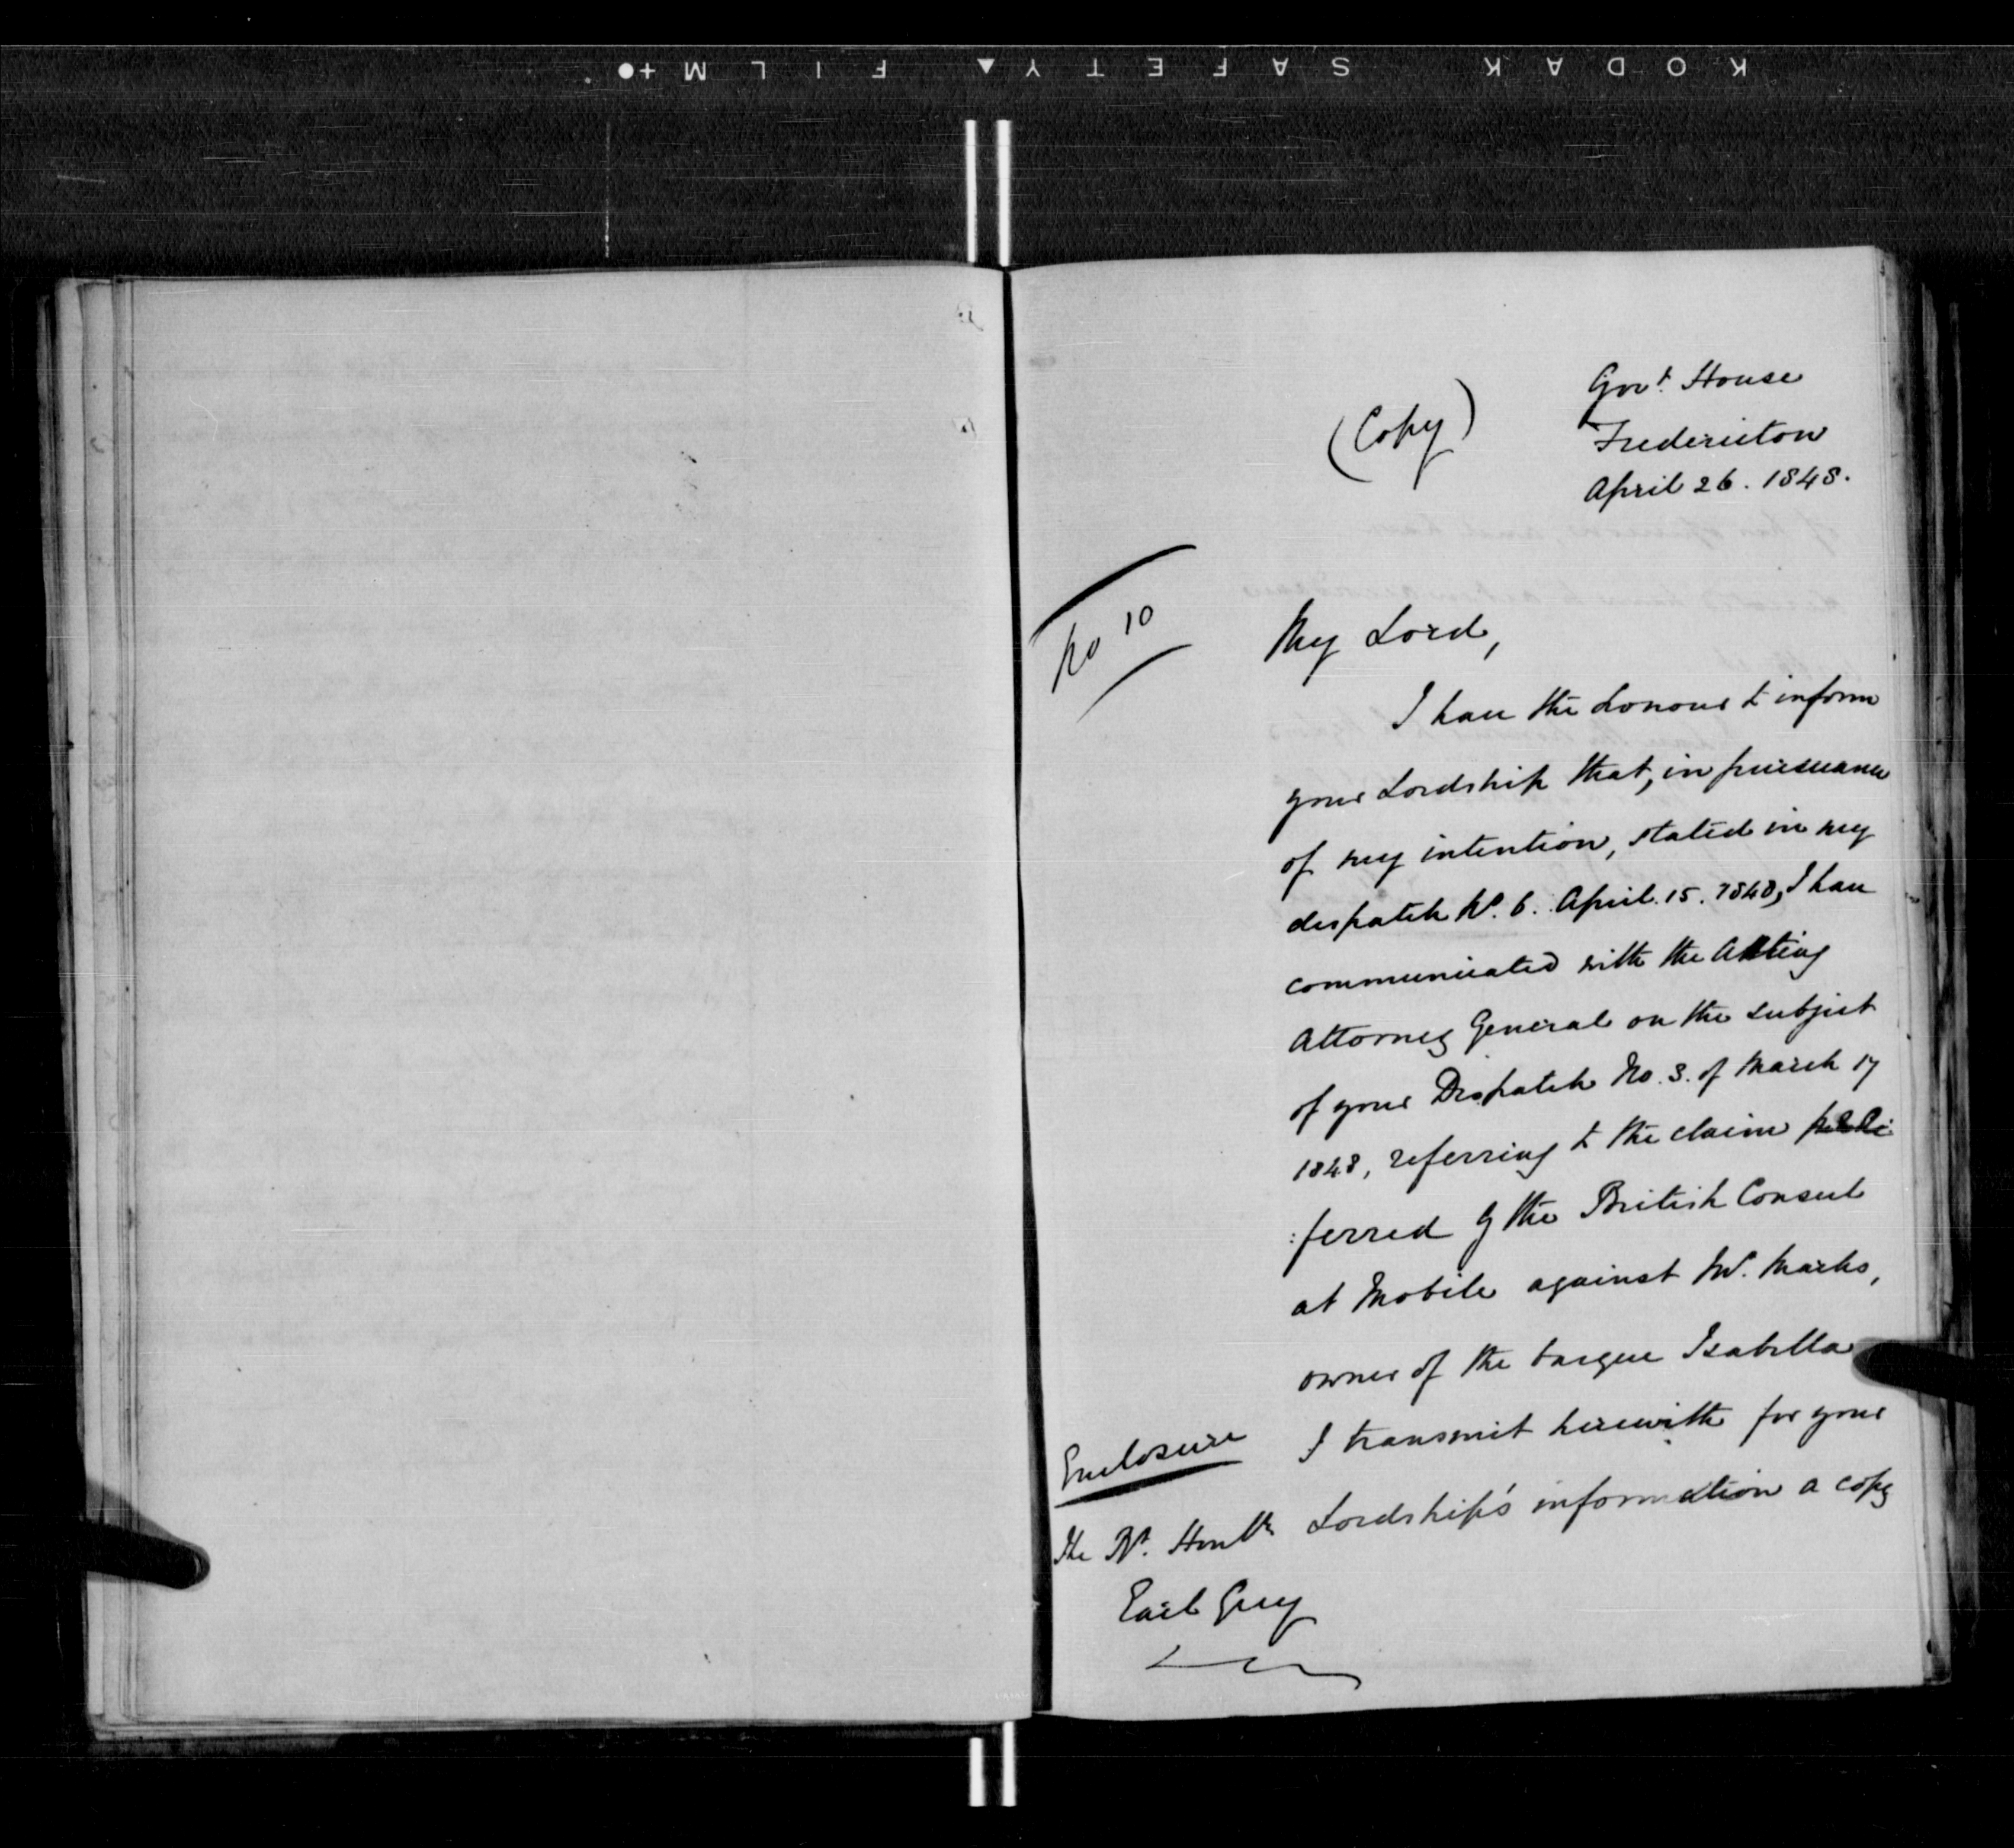 KODAK SAFETY FILM
(Copy)
Govt. House
Fredericton
April 26. 1848.
No 10
My Lord,
I have the honour to inform
your Lordship that, in pursuance
of my intention, stated in my
despatch No. 6. April. 15. 1848, I have
communicated with the Acting
Attorney General on the subject
of your Despatch No. 3. of March 17
1848, referring to the claim
:ferred by the British Consul
at Mobile against Mr. Marks,
owner of the barque Isabella
Enclosure
I transmit herewith for your
Lordship's information a copy
The Rt. Honble
Earl Grey